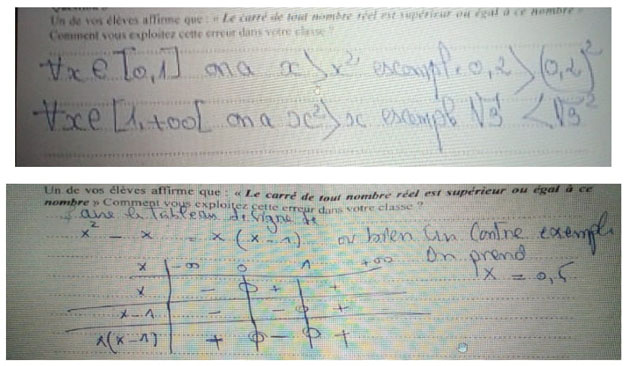 Un de vos élèves affirme que : « Le carré de tout nombre réel est supérieur ou égal à ce nombre »
Comment vous exploitez cette erreur dans votre classe ?
∀x∈[0,1] on a x>x² exempl. 0,2>(0,2)²
∀x∈[1,+∞[ on a x²>x exempl √3 < √3²
Un de vos élèves affirme que : « Le carré de tout nombre réel est supérieur ou égal à ce
nombre » Comment vous exploitez cette erreur dans votre classe ?
le Tableau de signe de
x² - x = x(x-1) ou bien un contre exempl
On prend
x = 0,5
x -∞ 0 1 +∞
x - 0 + +
x-1 - - 0 +
x(x-1) + 0 - 0 +